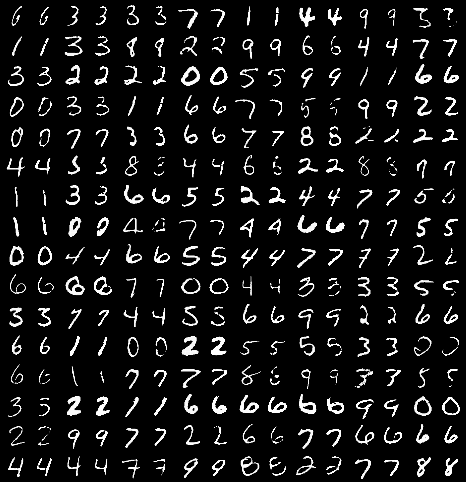 6 6 3 3 3 3 7 7 1 1 4 4 9 9 5 5
1 1 3 3 8 8 2 2 9 9 6 6 4 4 7 7
3 3 2 2 2 2 0 0 5 5 9 9 1 1 6 6
0 0 3 3 1 1 6 6 7 7 5 5 9 9 2 2
0 0 7 7 3 3 6 6 7 7 8 8 2 2 2 2
4 4 3 3 8 8 4 4 6 6 2 2 8 8 7 7
1 1 3 3 6 6 5 5 2 2 4 4 7 7 5 5
1 1 0 0 4 4 7 7 4 4 6 6 7 7 5 5
0 0 4 4 6 6 5 5 4 4 7 7 7 7 2 2
6 6 8 8 7 7 0 0 4 4 3 3 3 3 5 5
3 3 7 7 4 4 5 5 6 6 9 9 2 2 6 6
6 6 1 1 0 0 2 2 5 5 5 5 3 3 0 0
6 6 1 1 7 7 7 7 8 8 9 9 3 3 5 5
3 3 2 2 1 1 6 6 6 6 6 6 9 9 0 0
2 2 9 9 7 7 2 2 6 6 7 7 6 6 6 6
4 4 4 4 7 7 9 9 8 8 2 2 7 7 8 8